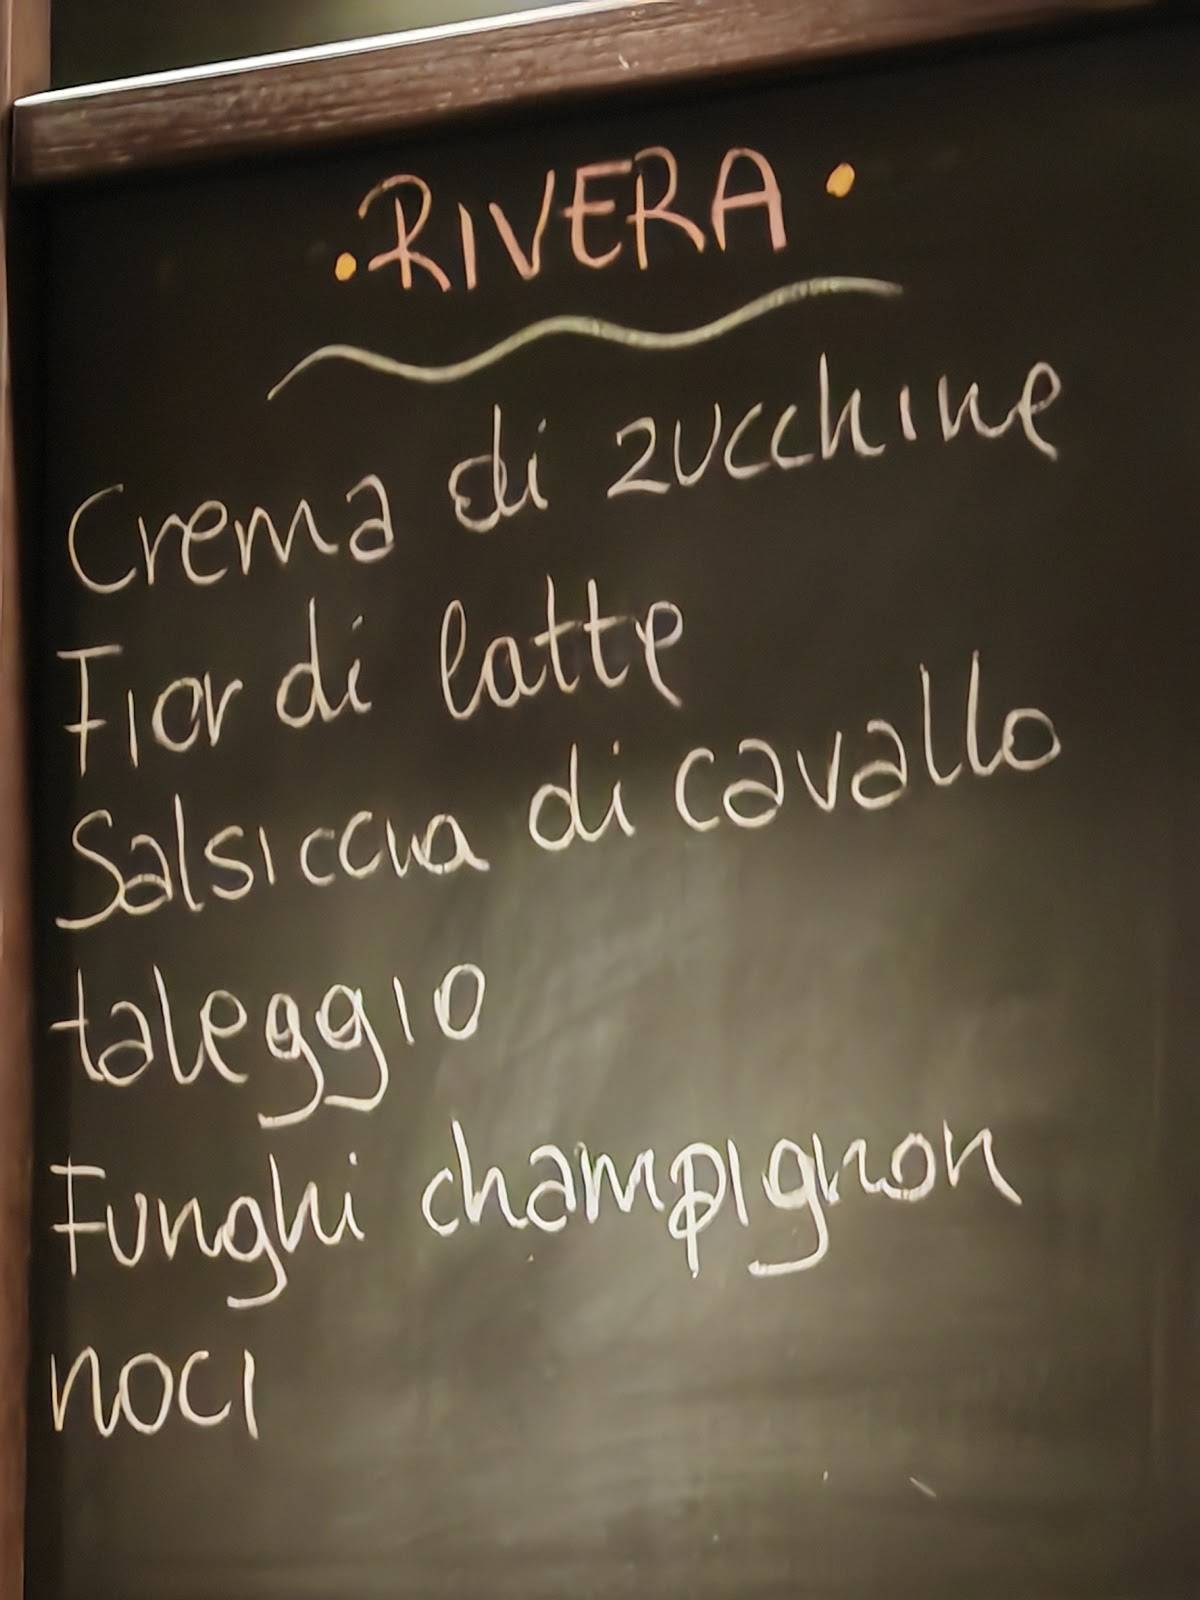 • RIVERA •
Crema di zucchine
Fior di latte
Salsiccia di cavallo
taleggio
Funghi champignon
noci